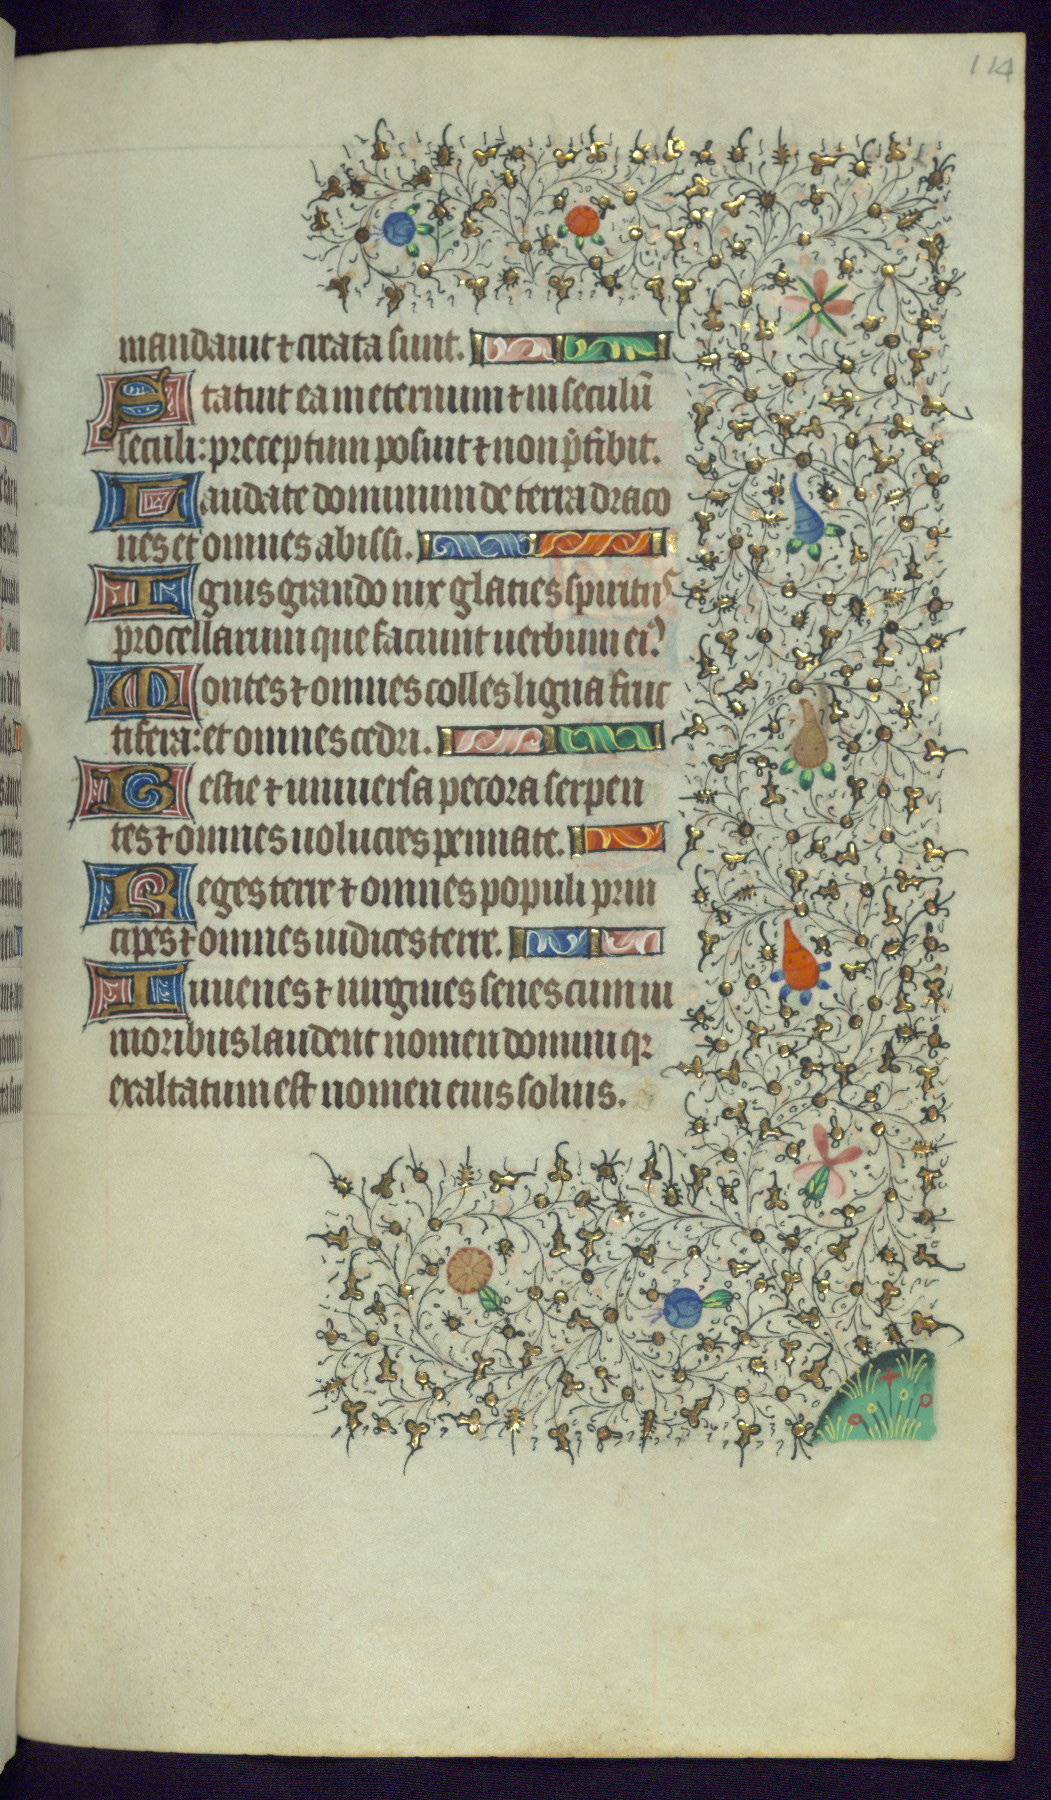 114
mandauit ⁊ creata sunt.
Statuit ea in eternum ⁊ in seculū
seculi: preceptum posuit ⁊ non p̄t̄ibit.
Laudate dominum de terra draco
nes et omnes abissi.
Ignis grando nix glacies spiritus
procellarum que faciunt uerbum eiꝰ
Montes ⁊ omnes colles ligna fruc
tifera: et omnes cedri.
Bestie ⁊ uniuersa pecora serpen
tes ⁊ omnes uolucres pennate.
Reges terre ⁊ omnes populi prin
cipes ⁊ omnes iudices terre.
Iuuenes ⁊ uirgines senes cum iu
nioribus laudent nomen domini qr
exaltatum est nomen eius solius.